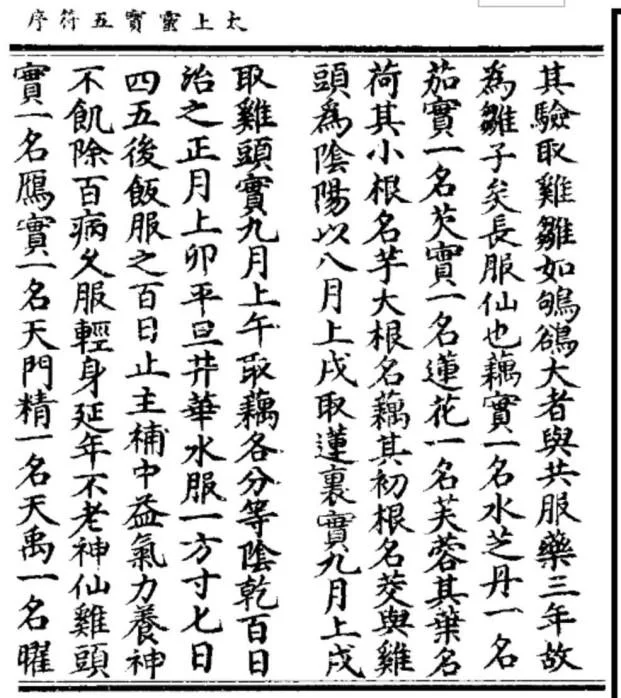 太上靈寶五符序
其驗取雞雛如鴝鵒大者與共服藥三年故
為雛子矣長服仙也藕實一名水芝丹一名
茄實一名芡實一名蓮花一名芙蓉其葉名
荷其小根名芋大根名藕其初根名茭與雞
頭為陰陽以八月上戌取蓮裏實九月上戌
取雞頭實九月上午取藕各分等陰乾百日
治之正月上卯平旦井華水服一方寸七日
四五後飯服之百日止主補中益氣力養神
不飢除百病久服輕身延年不老神仙雞頭
實一名鴈實一名天門精一名天禹一名曜